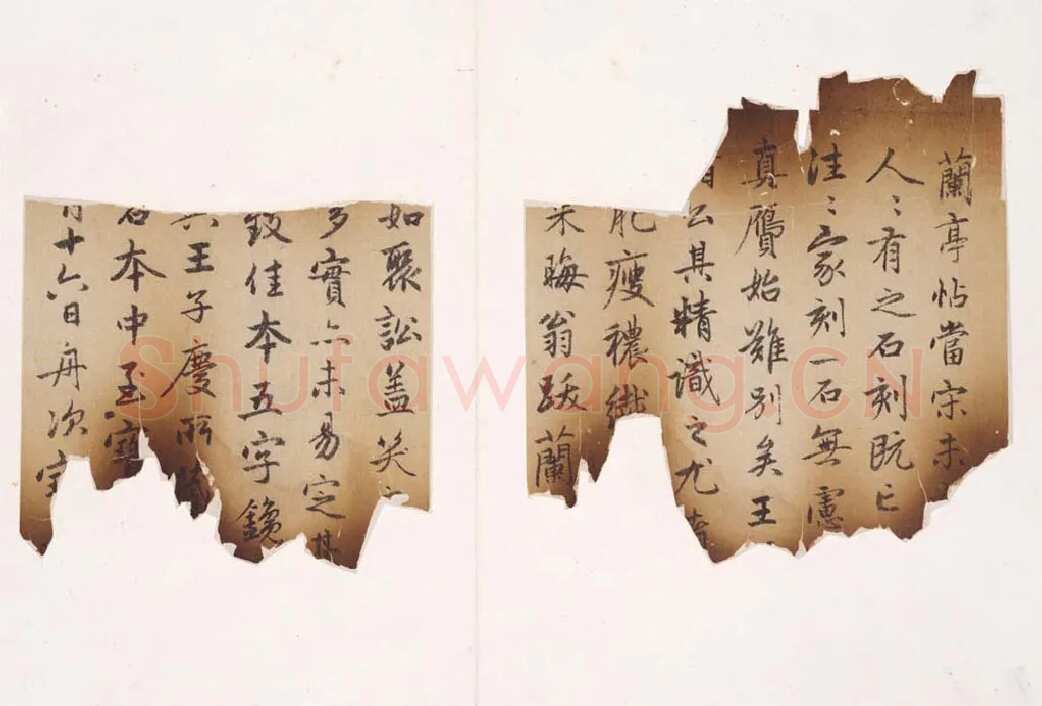 蘭亭帖當宋未
人〻有之石刻既亡
往〻家刻一石無慮
真贗始難別矣王
公其精識之尤
肥瘦穠纖
朱晦翁跋蘭
如聚訟盖笑
多實亦未易定其
致佳本五字鑱
王子慶所藏
石本中至寶
月十六日舟次
Shufawang.CN